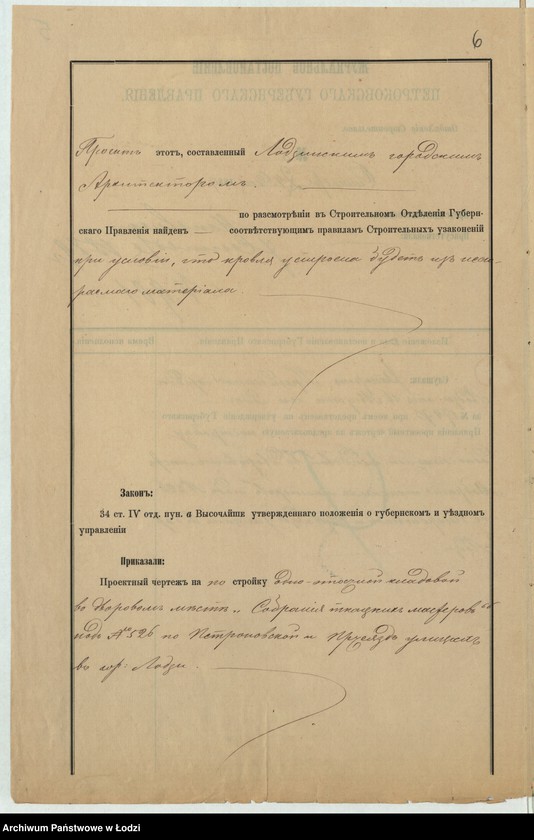 6
Проэктъ этотъ, составленный Лодзинскимъ городскимъ
Архитекторомъ.
по разсмотрѣніи въ Строительномъ Отдѣленіи Губерн-
скаго Правленія найденъ — соотвѣтствующимъ правиламъ Строительныхъ узаконеній
при условіи, что кровля устроена будетъ изъ несго-
раемаго матеріала.
Законъ:
34 ст. IV отд. пун. а Высочайше утвержденнаго положенія о губернскомъ и уѣздномъ
управленіи
Приказали:
Проектный чертежъ на по стройку одно-этажной кладовой
во дворовомъ мѣстѣ „Собранія ткацкихъ мастеровъ“
подъ № 526 по Петроковской и Пржеяздъ улицахъ
въ гор: Лодзи.
Archiwum Państwowe w Łodzi